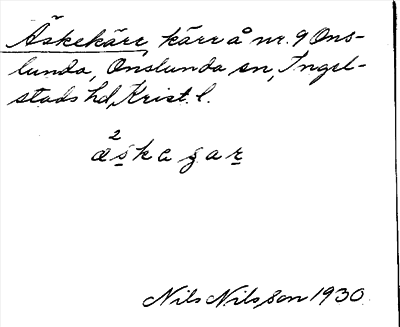 Äskekärr, kärr å nr. 9 Ons-
lunda, Onslunda sn, Ingel-
stads hd, Krist. l.
2
äskagar
Nils Nilsson 1930